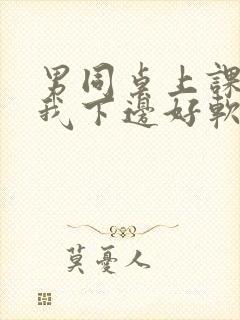 男同桌上課
我下邊好軟
莫憂人